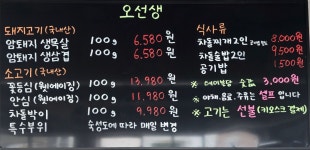 오선생
돼지고기 (국내산)
암퇘지 생목살 100g 6.580원
암퇘지 생삼겹 100g 6.580원
소고기 (국내산)
꽃등심 (웻에이징) 100g 13.980원
안심 (웻에이징) 100g 11.980원
차돌박이 100g 9.980원
특수부위 숙성도에 따라 매일 변경
식사류
차돌찌개2인 8.000원
차돌술밥2인 9.500원
공기밥 1.500원
※ 테이블당 숯값 3.000원
※ 야채.음료.주류는 셀프 입니다
※ 고기는 선불 (키오스크 결제)